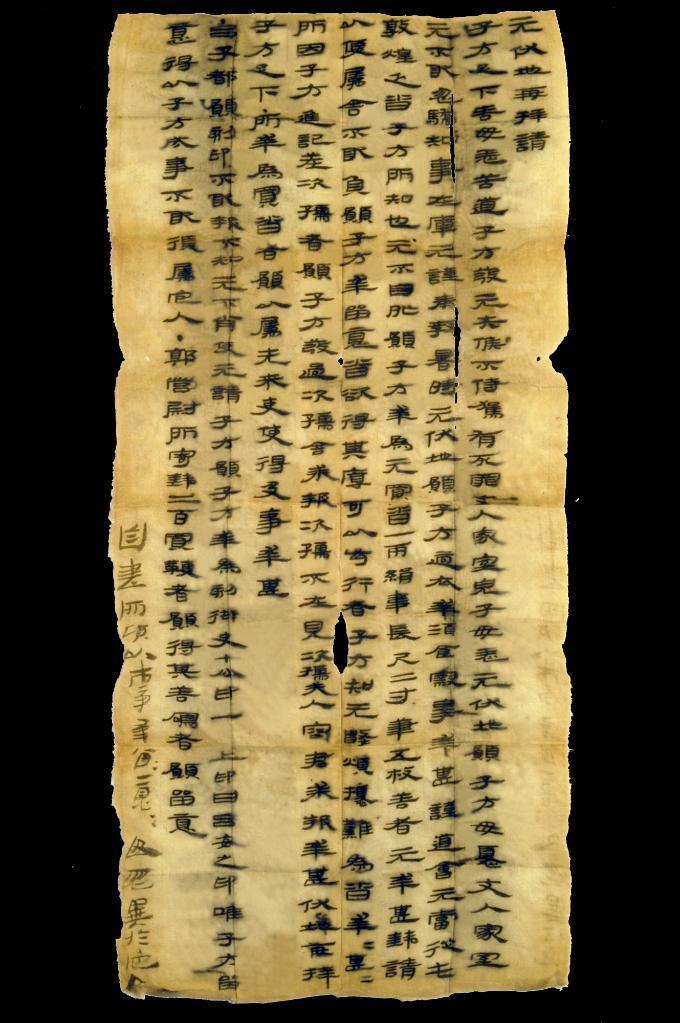 元伏地再拜請
子方足下善毋恙苦道子方發元失候不侍駕有死罪丈人家室兒子毋恙元伏地願子方毋憂丈人家室
元不敢忽驕知事在庫元謹奉教暑時元伏地願子方適衣幸酒食察事幸甚謹道會元當從屯
敦煌乏沓子方所知也元不自外願子方幸為元買沓一兩絹韋長尺二寸筆五枚善者元幸甚錢請
以便屬舍不敢負願子方幸留意沓欲得其厚可以步行者子方知元數煩擾難為沓幸=甚=
所因子方進記差次孺者願子方發過次孺舍求報次孺不在見次孺夫人容君求報幸甚伏地再拜
子方足下所幸為買沓者願以屬先來吏使得及事幸甚
・吕子都願刻印不敢報不知元不肖使元請子方願子方幸為刻御史七分印一龜上印曰吕安之印唯子方留
意得以子方成事不敢復屬它人・郭營尉所寄錢二百買鞭者願得其善鳴者願留意
自書所願以市事幸留=意=毋忽異於它人